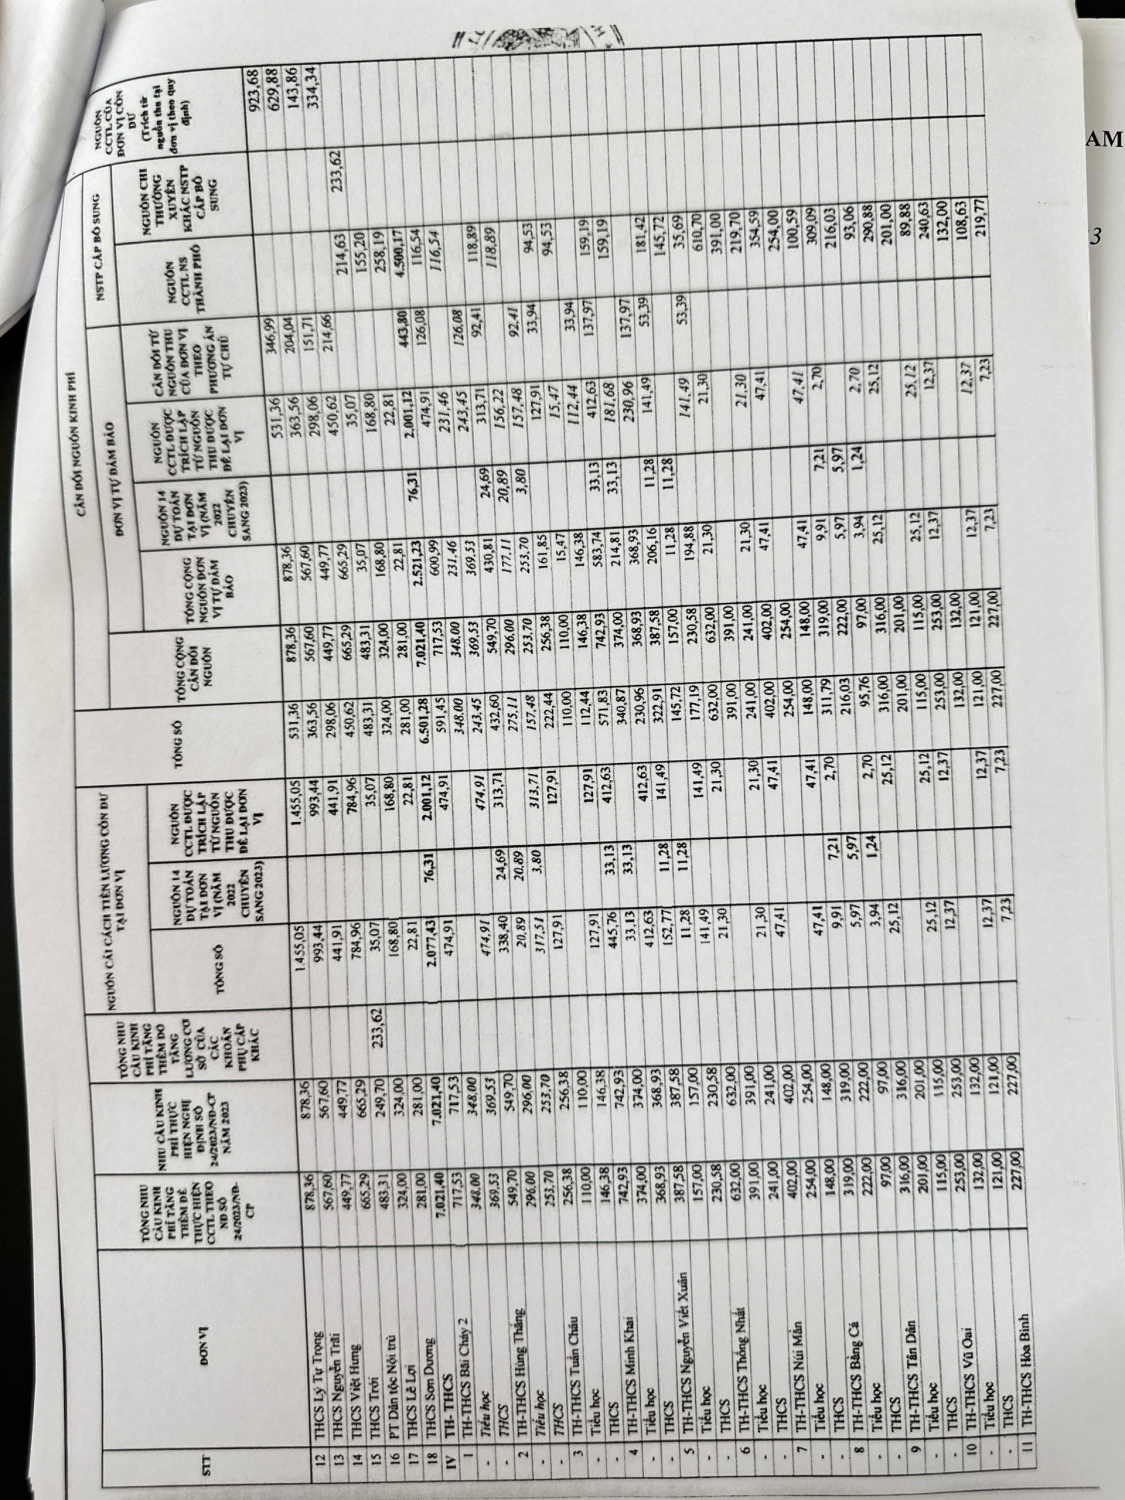 CÂN ĐỐI NGUỒN KINH PHÍ
NGUỒN CẢI CÁCH TIỀN LƯƠNG CÒN DƯ TẠI ĐƠN VỊ
ĐƠN VỊ TỰ ĐẢM BẢO
NSTP CẤP BỔ SUNG
STT
ĐƠN VỊ
TỔNG NHU CẦU KINH PHÍ TĂNG THÊM ĐỂ THỰC HIỆN CCTL THEO NĐ SỐ 24/2023/NĐ-CP
NHU CẦU KINH PHÍ THỰC HIỆN NGHỊ ĐỊNH SỐ 24/2023/NĐ-CP NĂM 2023
TỔNG NHU CẦU KINH PHÍ TĂNG THÊM DO TĂNG LƯƠNG CƠ SỞ CỦA CÁC KHOẢN PHỤ CẤP KHÁC
TỔNG SỐ
NGUỒN 14 DỰ TOÁN TẠI ĐƠN VỊ (NĂM 2022 CHUYỂN SANG 2023)
NGUỒN CCTL ĐƯỢC TRÍCH LẬP TỪ NGUỒN THU ĐƯỢC ĐỂ LẠI ĐƠN VỊ
TỔNG SỐ
TỔNG CỘNG CÂN ĐỐI NGUỒN
TỔNG CỘNG NGUỒN ĐƠN VỊ TỰ ĐẢM BẢO
NGUỒN 14 DỰ TOÁN TẠI ĐƠN VỊ (NĂM 2022 CHUYỂN SANG 2023)
NGUỒN CCTL ĐƯỢC TRÍCH LẬP TỪ NGUỒN THU ĐƯỢC ĐỂ LẠI ĐƠN VỊ
CÂN ĐỐI TỪ NGUỒN THU CỦA ĐƠN VỊ THEO PHƯƠNG ÁN TỰ CHỦ
NGUỒN CCTL NS THÀNH PHỐ
NGUỒN CHI THƯỜNG XUYÊN KHÁC NSTP CẤP BỔ SUNG
NGUỒN CCTL CỦA ĐƠN VỊ CÒN DƯ (Trích từ nguồn thu tại đơn vị theo quy định)
12 THCS Lý Tự Trọng 878,36 878,36 1.455,05 1.455,05 531,36 878,36 878,36 531,36 346,99 923,68
13 THCS Nguyễn Trãi 567,60 567,60 993,44 993,44 363,56 567,60 567,60 363,56 204,04 629,88
14 THCS Việt Hưng 449,77 449,77 441,91 441,91 298,06 449,77 449,77 298,06 151,71 143,86
15 THCS Trới 665,29 665,29 784,96 784,96 450,62 665,29 665,29 450,62 214,66 334,34
16 PT Dân tộc Nội trú 483,31 249,70 233,62 35,07 35,07 483,31 483,31 35,07 35,07 214,63 233,62
17 THCS Lê Lợi 324,00 324,00 168,80 168,80 324,00 324,00 168,80 168,80 155,20
18 THCS Sơn Dương 281,00 281,00 22,81 22,81 281,00 281,00 22,81 22,81 258,19
IV TH- THCS 7.021,40 7.021,40 2.077,43 76,31 2.001,12 6.501,28 7.021,40 2.521,23 76,31 2.001,12 443,80 4.500,17
1 TH-THCS Bãi Cháy 2 717,53 717,53 474,91 474,91 591,45 717,53 600,99 474,91 126,08 116,54
- Tiểu học 348,00 348,00 348,00 348,00 231,46 231,46 116,54
- THCS 369,53 369,53 474,91 474,91 243,45 369,53 369,53 243,45 126,08
2 TH-THCS Hùng Thắng 549,70 549,70 338,40 24,69 313,71 432,60 549,70 430,81 24,69 313,71 92,41 118,89
- Tiểu học 296,00 296,00 20,89 20,89 275,11 296,00 177,11 20,89 156,22 118,89
- THCS 253,70 253,70 317,51 3,80 313,71 157,48 253,70 253,70 3,80 157,48 92,41
3 TH-THCS Tuần Châu 256,38 256,38 127,91 127,91 222,44 256,38 161,85 127,91 33,94 94,53
- Tiểu học 110,00 110,00 110,00 110,00 15,47 15,47 94,53
- THCS 146,38 146,38 127,91 127,91 112,44 146,38 146,38 112,44 33,94
4 TH-THCS Minh Khai 742,93 742,93 445,76 33,13 412,63 571,83 742,93 583,74 33,13 412,63 137,97 159,19
- Tiểu học 374,00 374,00 33,13 33,13 340,87 374,00 214,81 33,13 181,68 159,19
- THCS 368,93 368,93 412,63 412,63 230,96 368,93 368,93 230,96 137,97
5 TH-THCS Nguyễn Viết Xuân 387,58 387,58 152,77 11,28 141,49 322,91 387,58 206,16 11,28 141,49 53,39 181,42
- Tiểu học 157,00 157,00 11,28 11,28 145,72 157,00 11,28 11,28 145,72
- THCS 230,58 230,58 141,49 141,49 177,19 230,58 194,88 141,49 53,39 35,69
6 TH-THCS Thống Nhất 632,00 632,00 21,30 21,30 632,00 632,00 21,30 21,30 610,70
- Tiểu học 391,00 391,00 391,00 391,00 391,00
- THCS 241,00 241,00 21,30 21,30 241,00 241,00 21,30 21,30 219,70
7 TH-THCS Núi Mằn 402,00 402,00 47,41 47,41 402,00 402,00 47,41 47,41 354,59
- Tiểu học 254,00 254,00 254,00 254,00 254,00
- THCS 148,00 148,00 47,41 47,41 148,00 148,00 47,41 47,41 100,59
8 TH-THCS Bằng Cả 319,00 319,00 9,91 7,21 2,70 311,79 319,00 9,91 7,21 2,70 309,09
- Tiểu học 222,00 222,00 5,97 5,97 216,03 222,00 5,97 5,97 216,03
- THCS 97,00 97,00 3,94 1,24 2,70 95,76 97,00 3,94 1,24 2,70 93,06
9 TH-THCS Tân Dân 316,00 316,00 25,12 25,12 316,00 316,00 25,12 25,12 290,88
- Tiểu học 201,00 201,00 201,00 201,00 201,00
- THCS 115,00 115,00 25,12 25,12 115,00 115,00 25,12 25,12 89,88
10 TH-THCS Vũ Oai 253,00 253,00 12,37 12,37 253,00 253,00 12,37 12,37 240,63
- Tiểu học 132,00 132,00 132,00 132,00 132,00
- THCS 121,00 121,00 12,37 12,37 121,00 121,00 12,37 12,37 108,63
11 TH-THCS Hòa Bình 227,00 227,00 7,23 7,23 227,00 227,00 7,23 7,23 219,77
AM
3